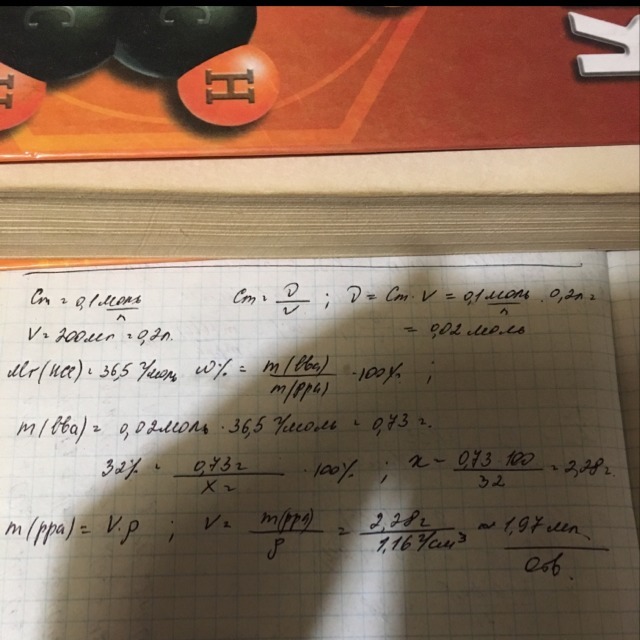 C C
H H
К
Cm = 0,1 моль/л Cm = ν/V ; ν = Cm · V = 0,1 моль/л · 0,2л =
V = 200мл = 0,2л. = 0,02 моль
Mr(HCl) = 36,5 г/моль ω% = m(вва)/m(рра) · 100% ;
m(вва) = 0,02моль · 36,5 г/моль = 0,73 г.
32% = 0,73г/Xг · 100% ; x = 0,73 · 100/32 = 2,28г.
m(рра) = V·ρ ; V = m(рра)/ρ = 2,28г/1,16 г/см³ ≈ 1,97 мл
Отв.